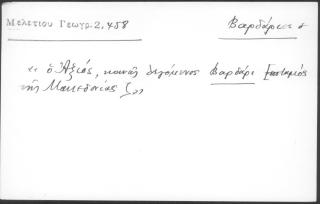 Μελετίου Γεωγρ. 2, 458
Βαρδάρις
« ὁ Ἀξιός, κοινῶς λεγόμενος Βαρδάρι [ποταμὸς
τῆς Μακεδονίας] »